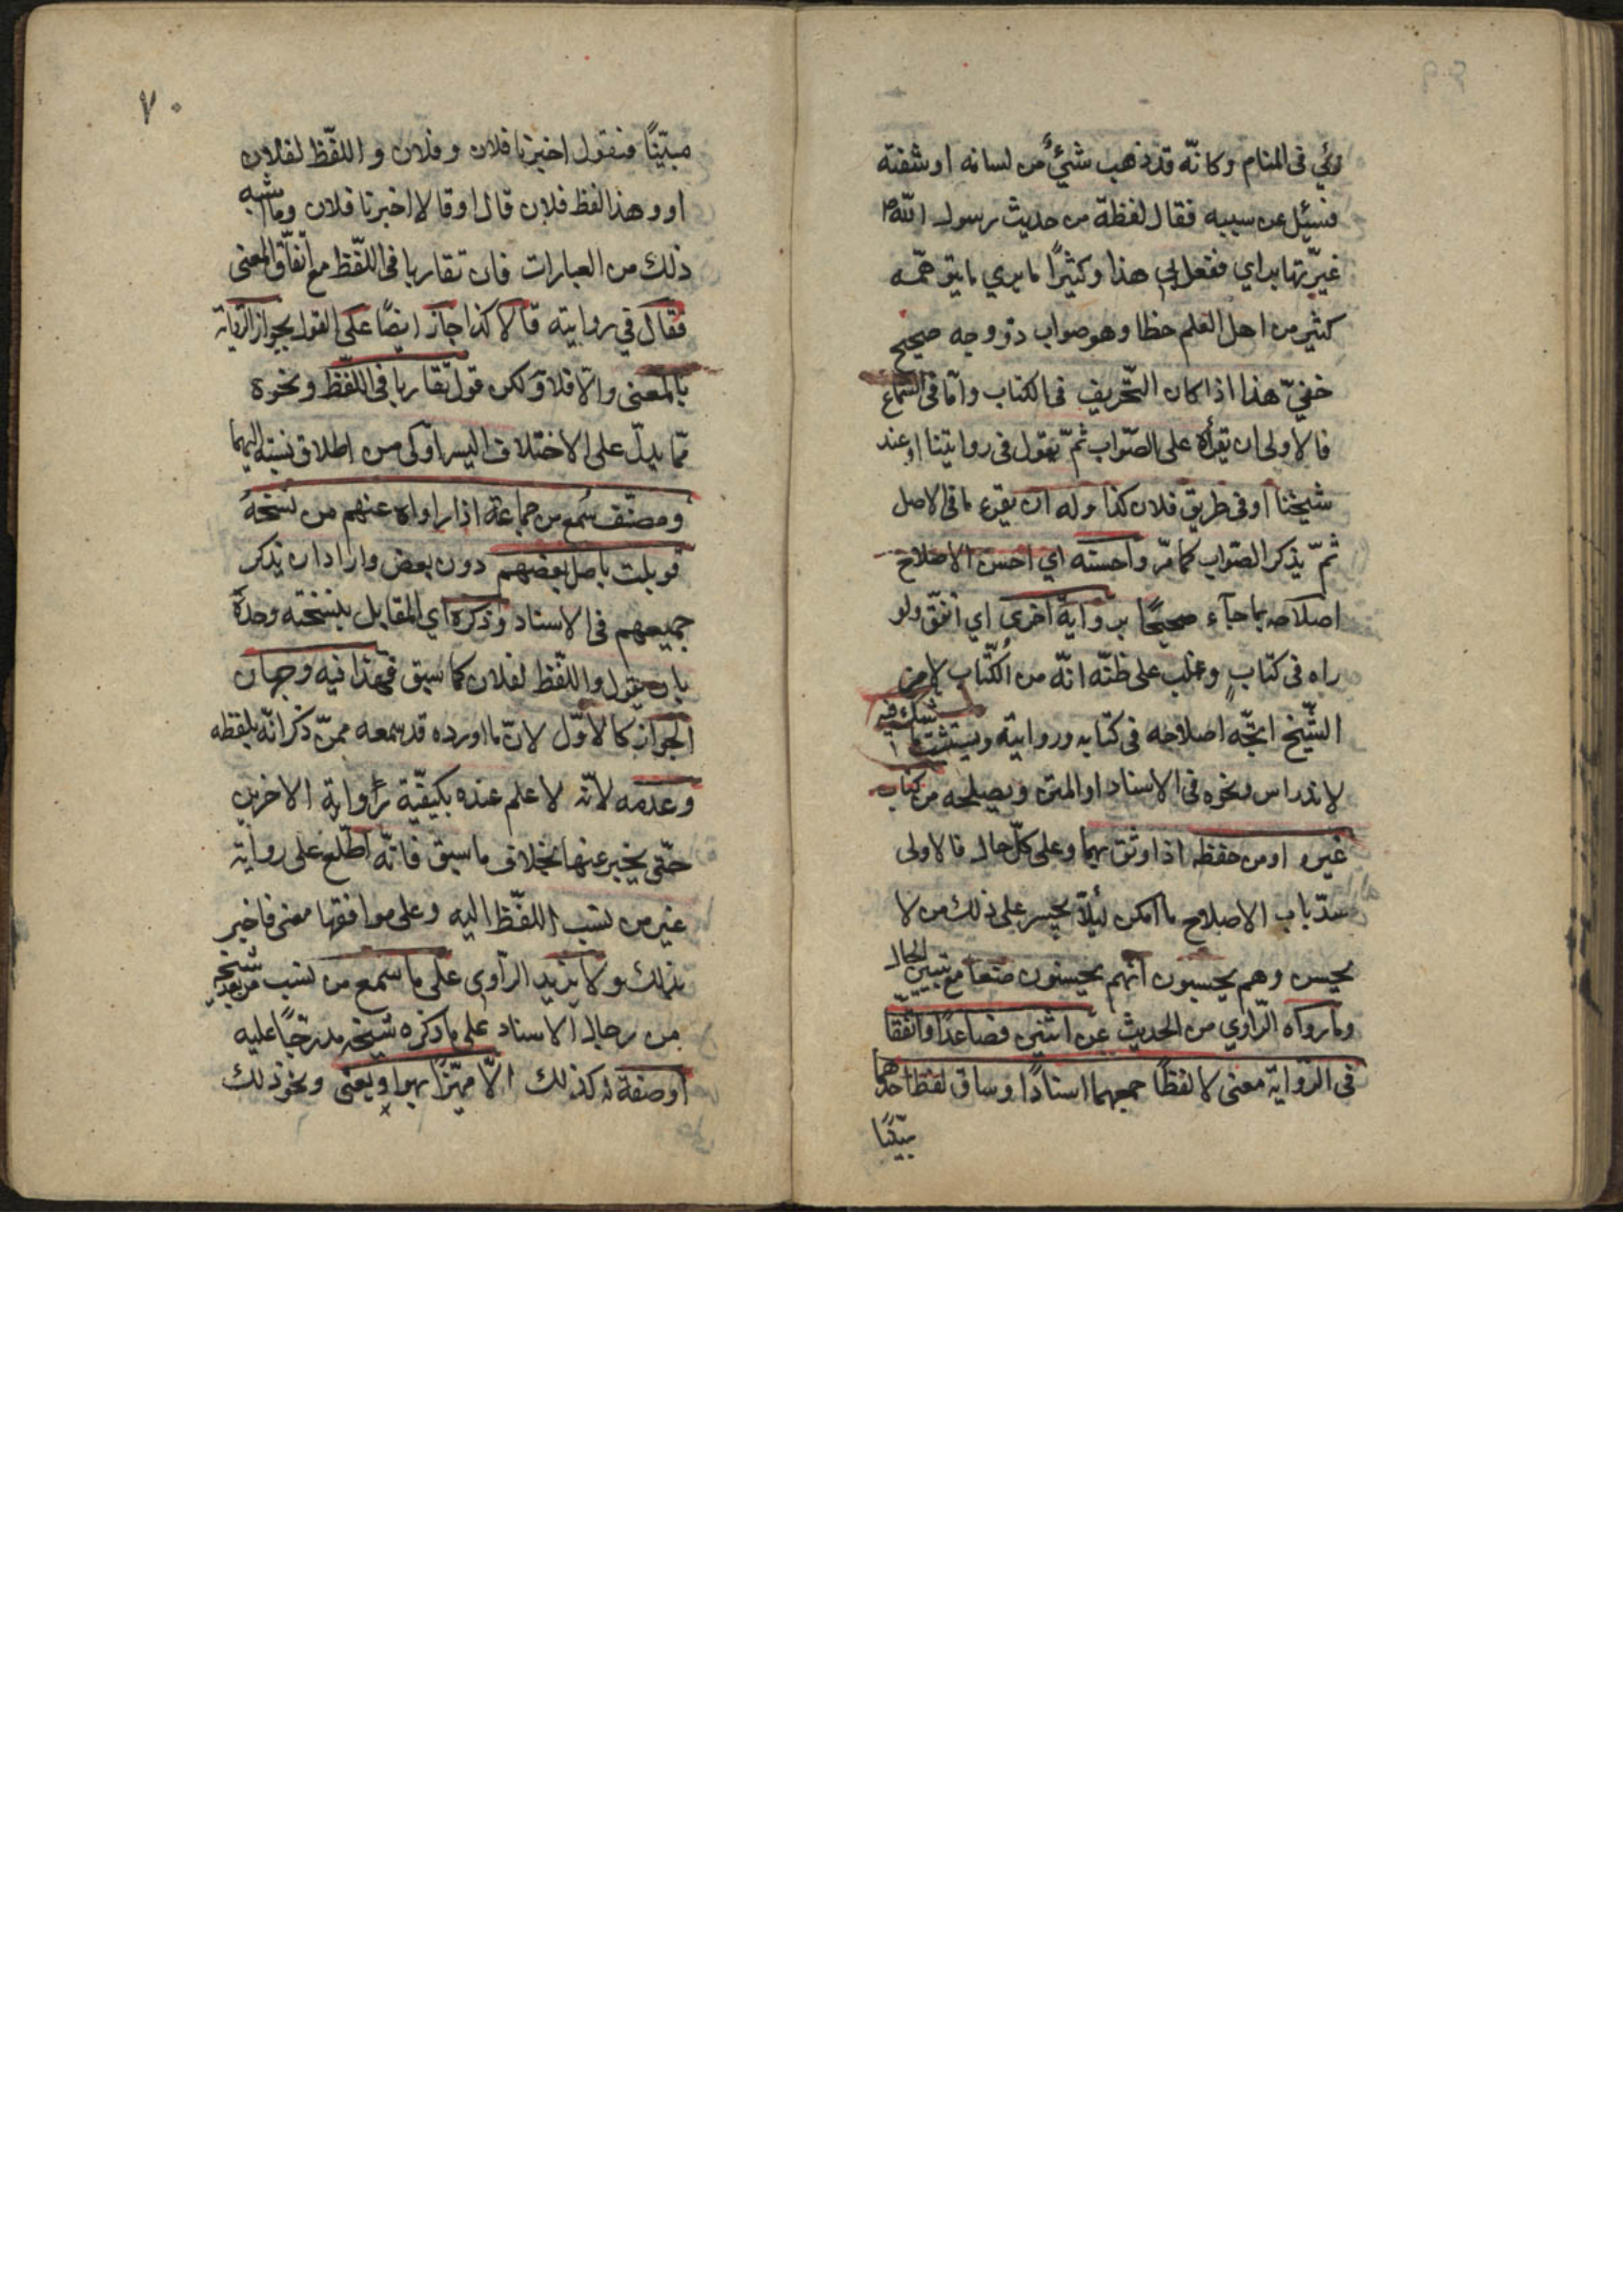 رئي في المنام وكانّه قد ذهب شئ من لسانه او شفته
فسئل عن سببه فقال لفظة من حديث رسول الله ص
غيّرتها برأي ففعل بي هذا وكثيرًا ما يري ما يتوهّمه
كثير من اهل العلم خطا وهو صواب ذو وجه صحيح
خفيّ هذا اذا كان التّحريف في الكتاب وامّا في السّماع
فالاولى ان يقرأه على الصّواب ثمّ يقول في روايتنا او عند
شيخنا او في طريق فلان كذا وله ان يقرء ما في الاصل
ثمّ يذكر الصّواب كما مرّ واحسنه اي احسن الاصلاح
اصلاحه بما جآء صحيحًا برواية اخرى اي اتّفق ولو
راه في كتاب وغلب على ظنّه انّه من الكتاب لا من
الشّيخ اتّجه اصلاحه في كتابه وروايته ويستثبت ما شكّ فيه
لاندراس ونحوه في الاسناد او المتن ويصلحه من كتاب
غيره او من حفظه اذا وثق بهما وعلى كلّ حال فالاولى
سدّ باب الاصلاح ما امكن ليئلّا يجسر على ذلك من لا
يحسن وهم يحسبون انّهم يحسنون صنعا مع تبيين الحال
وما رواه الرّاوي من الحديث عن اثنين فصاعدًا واتّفقا
في الرّواية معنى لا لفظًا جمعهما اسنادًا وساق لفظ احدهما
مبيّنًا
٧٠
مبيّنًا فيقول اخبرنا فلان وفلان واللّفظ لفلان
او وهذا لفظ فلان قال او قالا اخبرنا فلان وما اشبه
ذلك من العبارات فان تقاربا في اللّفظ مع اتّفاق المعنى
فقال في روايته قالا كذا جاز ايضًا على القول بجواز الرّواية
بالمعنى والّا فلا ولكن قول تقاربا في اللّفظ ونحوه
ممّا يدلّ على الاختلاف اليسير اولى من اطلاق نسبته اليهما
ومصنّف سُمع من جماعة اذا رواه عنهم من نسخة
قوبلت باصل بعضهم دون بعض واراد ان يذكر
جميعهم في الاسناد وذكره اي المقابل بنسخته وحده
بان يقول واللّفظ لفلان كما سبق فهذا فيه وجهان
الجواز كالاوّل لانّ ما اورده قد سمعه ممّن ذكر انّه بلفظه
وعدمه لانّه لا علم عنده بكيفيّة رواية الاخرين
حتّى يخبر عنها بخلاف ما سبق فانّه اطّلع على رواية
غير من نسب اللّفظ اليه وعلى موافقها معنى فاخبر
بذلك ولا يزيد الرّاوي على ما سمع من نسب شيخه من بعد
من رجال الاسناد على ما ذكره شيخه مدرجًا عليه
او صفة له كذلك الّا مميّزًا بهو او يعنى ونحو ذلك